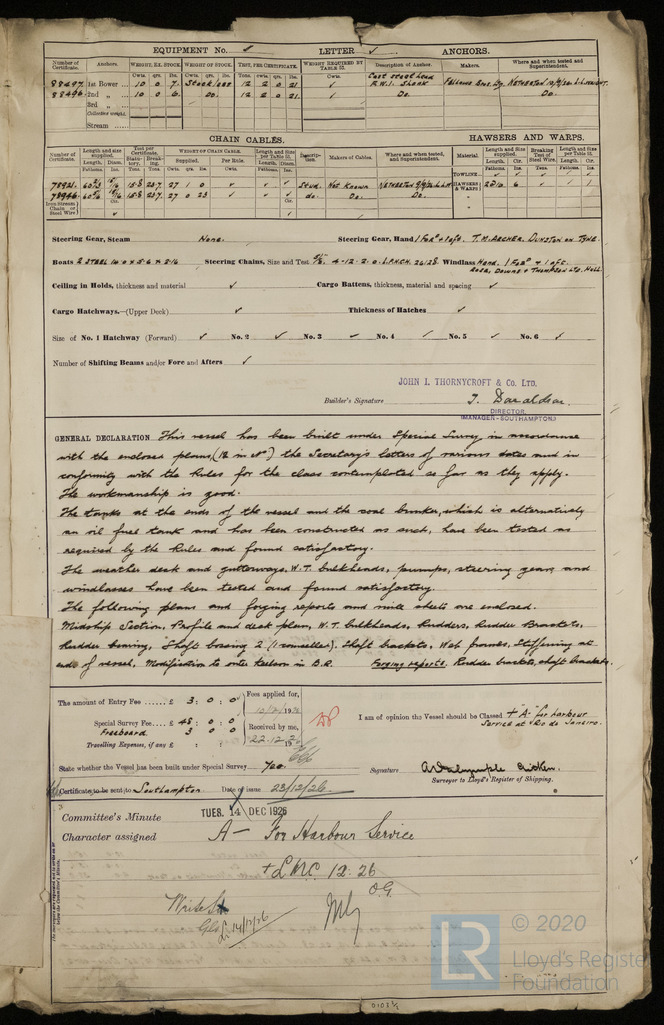 EQUIPMENT No. LETTER ANCHORS.
Number of Certificate. Anchors. WEIGHT, EX. STOCK. WEIGHT OF STOCK. TEST, PER CERTIFICATE. WEIGHT REQUIRED BY TABLE 30. Description of Anchor. Makers. Where and when tested and Superintendent.
Cwts. qrs. lbs. Cwts. qrs. lbs. Tons. cwts. qrs. lbs. Cwts.
88497 1st Bower 10 0 7 Stockless 12 2 0 21 ✓ Cast steel head
88496 2nd „ 10 0 6 Do. 12 2 0 21 ✓ Do. Do.
3rd „
Collective weight
Stream
CHAIN CABLES. HAWSERS AND WARPS.
Number of Certificate. Length and size supplied. Test per Certificate. WEIGHT OF CHAIN CABLE. Length and size per Table 31. Description. Makers of Cables. Where and when tested, and Superintendent. Material. Length and size supplied. Breaking Test of Steel Wire. Length and size per Table 31.
Length. Diam. Statutory. Breaking. Supplied. Per Rule. Length. Diam. Length. Cir. Length. Cir.
78921 15·8 23·7 27 1 0 ✓ Stud. Not Known TOWLINE
78946 15·8 23·7 27 0 23 ✓ do. Do. Do. HAWSERS & WARPS
Iron Stream Chain or Steel Wire
Steering Gear, Steam None. Steering Gear, Hand 1 for'd & 1 aft. T. W. ARCHER, DUNSTON ON TYNE.
Boats 2 STEEL 16·0 x 5·6 x 2·16 Steering Chains, Size and Test 4-12-2-0 L.P.H.CH. Windlass Hand. 1 For'd & 1 aft.
Rose, Downs & Thompson Ltd. Hull
Ceiling in Holds, thickness and material ✓ Cargo Battens, thickness, material and spacing ✓
Cargo Hatchways.—(Upper Deck) ✓ Thickness of Hatches ✓
Size of No. 1 Hatchway (Forward) ✓ No. 2 ✓ No. 3 ✓ No. 4 ✓ No. 5 ✓ No. 6 ✓
Number of Shifting Beams and/or Fore and Afters ✓
JOHN I. THORNYCROFT & CO. LTD.
Builder's Signature T. Donaldson.
DIRECTOR.
(MANAGER-SOUTHAMPTON.)
GENERAL DECLARATION This vessel has been built under Special Survey in accordance
with the enclosed plans, (12 in No) the Secretary's letters of various dates and in
conformity with the Rules for the class contemplated so far as they apply.
The workmanship is good.
The tanks at the ends of the vessel and the coal bunker, which is alternatively
an oil fuel tank and has been constructed as such, have been tested as
required by the Rules and found satisfactory.
The weather deck and gutterways, W.T. bulkheads, pumps, steering gear, and
windlasses have been tested and found satisfactory.
The following plans and forging reports and mill sheets are enclosed.
Midship Section, Profile and deck plan, W.T. bulkheads, Rudders, Rudder Brackets,
Rudder bearing, Shaft bossing 2 (1 cancelled). Shaft brackets, Web frames, Stiffening at
ends of vessel, Modification to center keelson in B.R. Forging reports, Rudder brackets, shaft brackets.
The amount of Entry Fee ...... £ 3 : 0 : 0 Fees applied for,
Special Survey Fee.... £ 48 : 0 : 0 Received by me,
Freeboard 3 0 0 22.12.1926
Travelling Expenses, if any £ : :
I am of opinion the Vessel should be Classed + "A" for harbour
Service at Rio de Janeiro.
State whether the Vessel has been built under Special Survey Yes Signature
Surveyor to Lloyd's Register of Shipping.
Certificate to be sent to Southampton Date of issue 23/12/26.
Committee's Minute TUES. 14 DEC 1926
Character assigned A — For Harbour Service
+ LMC 12.26
O.G.
14/12/26
LR
© 2020
Lloyd's Register
Foundation